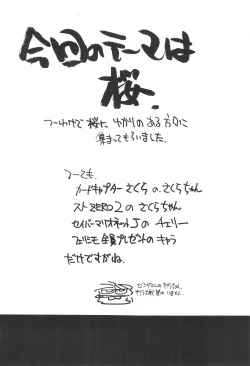 今回のテーマは
桜.
つーわけで 桜に ゆかりのある方々に
集まってもらいました.
つーても.
カードキャプター さくら の さくらちゃん
スト ZERO2 の さくらちゃん
セイバーマリオネットJ の チェリー
全員プレゼントの キャラ
だけですがね.